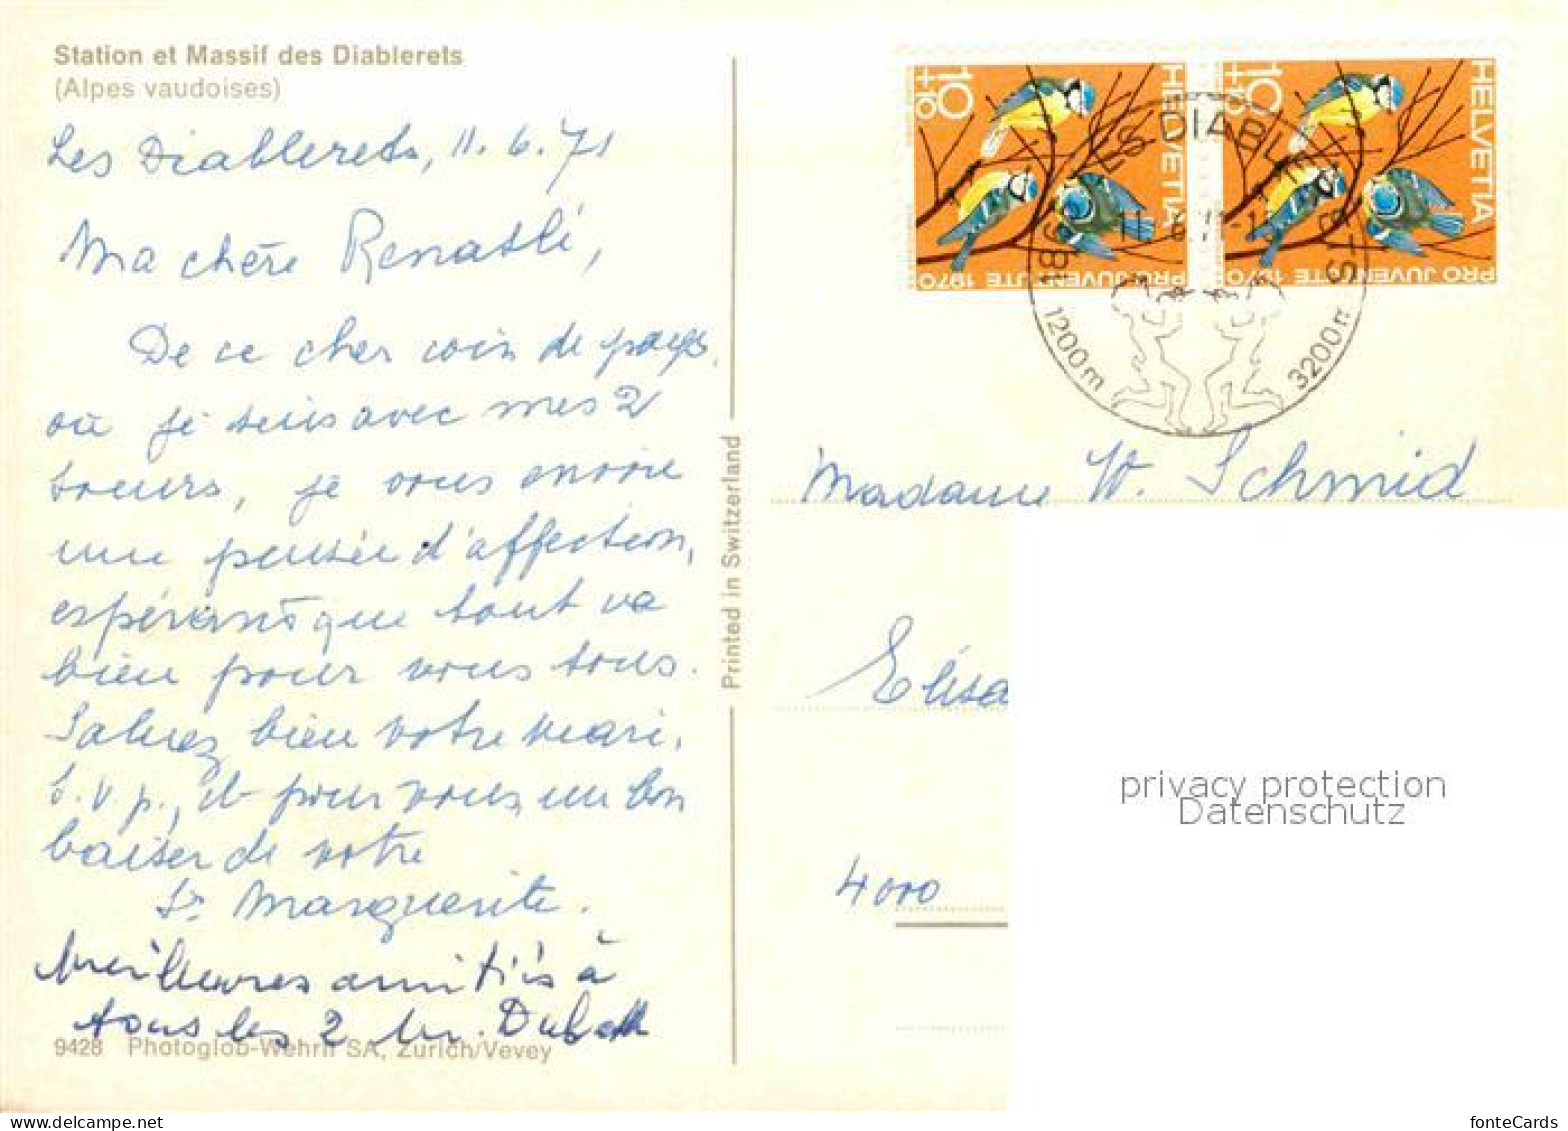 Station et Massif des Diablerets
(Alpes vaudoises)
Les Diablerets, 11.6.71
Ma chère Renatli,
De ce cher coin de pays,
où je suis avec mes 2
soeurs, je vous envoie
une pensée d'affection,
espérant que tout va
bien pour vous tous.
Saluez bien votre mari,
s.v.p., et pour vous, un bon
baiser de votre
Sr Marguerite.
Meilleures amitiés à
tous les 2
9428 Photoglob-Wehrli SA, Zürich/Vevey
Printed in Switzerland
10+10
HELVETIA
PRO JUVENTUTE 1970
10+10
HELVETIA
PRO JUVENTUTE 1970
LES DIABLE
11.6.71-
1200m
3200m
Madame W. Schmid
Elisa
4000
privacy protection
Datenschutz
fonteCards